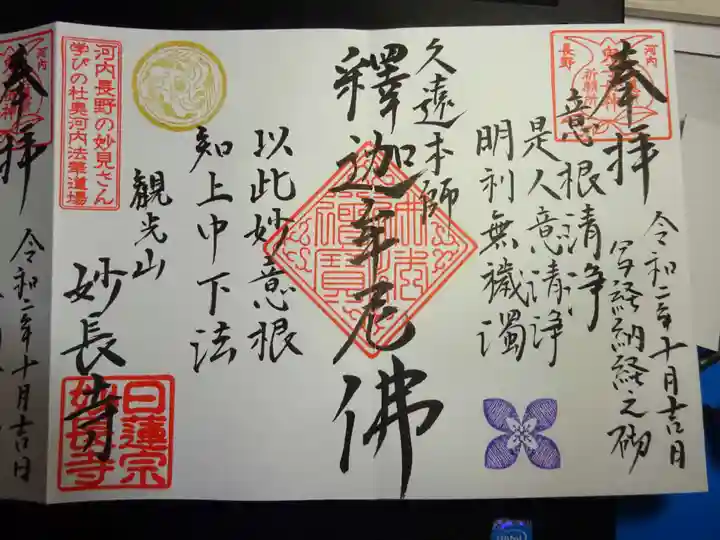 奉拝
令和二年十月吉日
写経納経之砌
河内
長野
祈願所
意根清浄
是人意清浄
明利無穢濁
久遠本師
釋迦牟尼佛
以此妙意根
知上中下法
観光山
妙長寺
河内長野の妙見さん
学びの杜奥河内法華道場
日蓮宗
妙長寺
河内
奉拝
令和二年十月吉日
intel